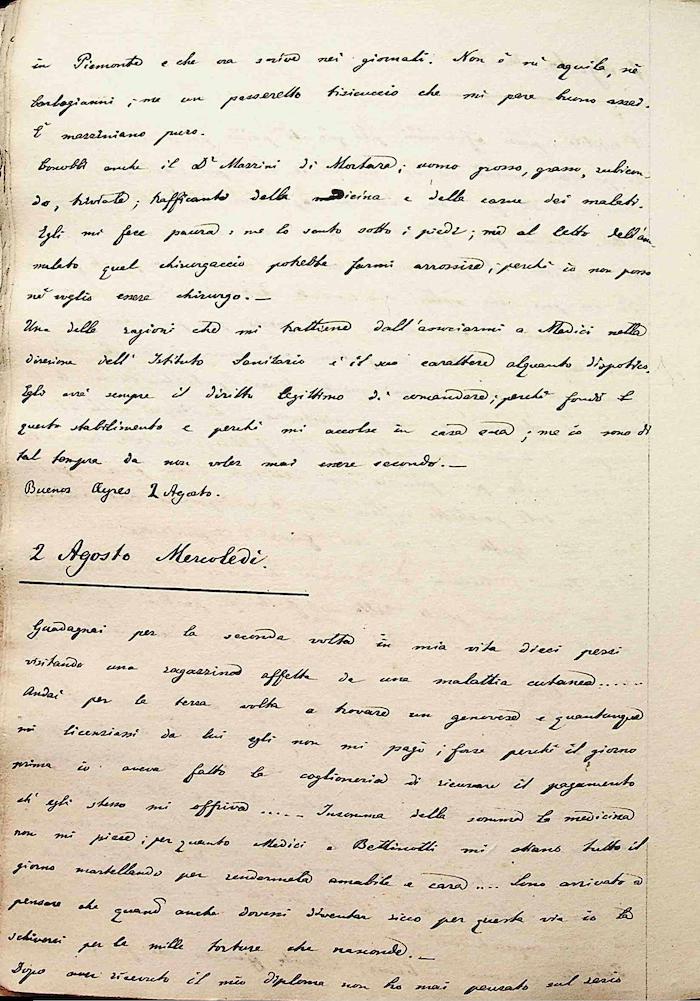 in Piemonte e che ora scrive nei giornali. Non è nè aquila, nè
barbagianni; ma un passeretto tisicuccio che mi pare buono assai.
È mazziniano puro.
Conobbi anche il Dr Mazzini di Mortara; uomo grosso, grasso, rubicon-
do, triviale; trafficante della medicina e della carne dei malati.
Egli mi fece paura: me lo sento sotto i piedi; ma al letto dell'am-
malato quel chirurgaccio potrebbe farmi arrossire; perchè io non posso
nè voglio essere chirurgo. _
Una delle ragioni che mi trattiene dall'associarmi a Medici nella
direzione dell'Istituto Sanitario è il suo carattere alquanto dispotico.
Egli avrà sempre il diritto legittimo di comandare; perchè fondò
questo stabilimento e perchè mi accolse in casa sua; ma io sono di
tal tempra da non voler mai essere secondo. _
Buenos Ayres 2 Agosto.
2 Agosto Mercoledì.
Guadagnai per la seconda volta in mia vita dieci pezzi
visitando una ragazzina affetta da una malattia cutanea......
Andai per la terza volta a trovare un genovese e quantunque
mi licenziassi da lui egli non mi pagò; forse perchè il giorno
prima io aveva fatto la coglioneria di ricusare il pagamento
ch'egli stesso mi offriva..... Insomma della somma la medicina
non mi piace; per quanto Medici e Bettinotti mi stiano tutto il
giorno martellando per rendermela amabile e cara.... Sono arrivato a
pensare che quand'anche dovessi diventar ricco per questa via io la
schiverei per le mille torture che nasconde. _
Dopo aver ricevuto il mio diploma non ho mai pensato sul serio